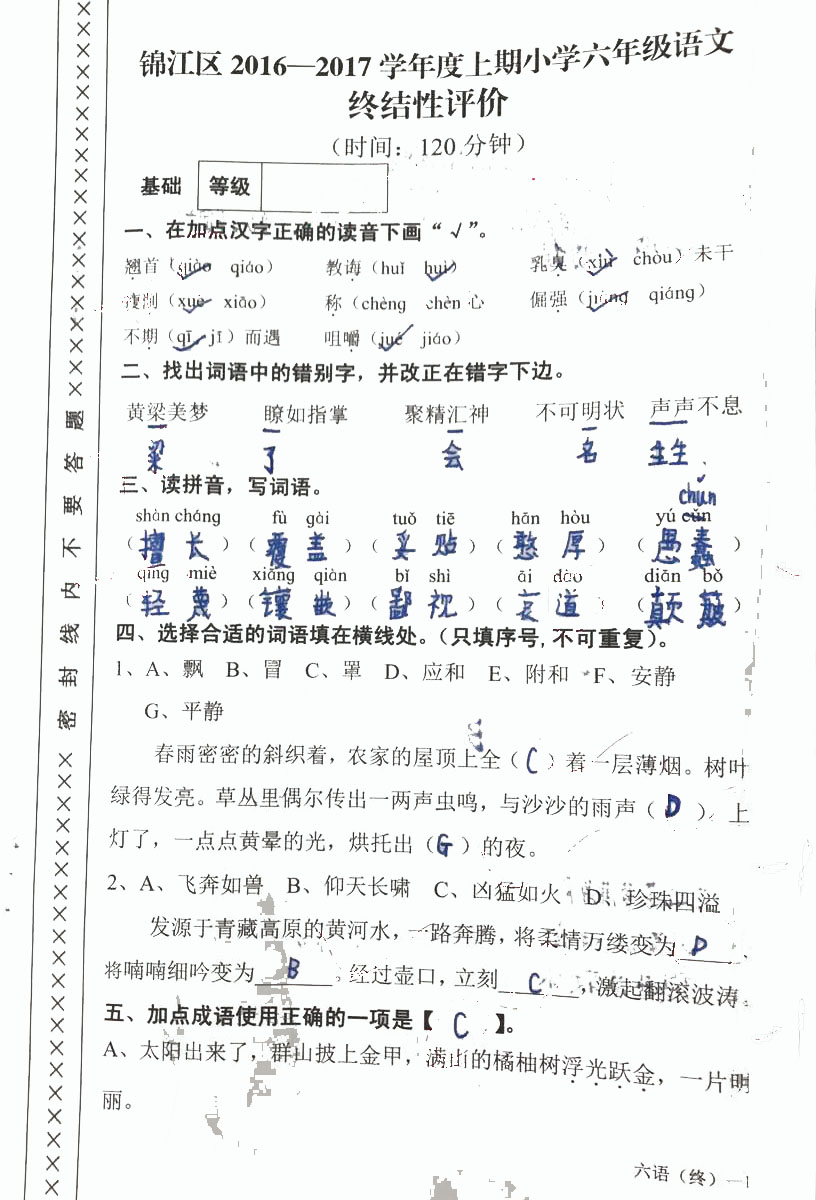 锦江区 2016—2017 学年度上期小学六年级语文
终结性评价
（时间：120 分钟）
基础 等级
一、在加点汉字正确的读音下画“√”。
翘首（qiào qiáo） 教诲（huǐ huì） 乳臭（xiù chòu）未干
（xuē xiāo） 称（chèng chèn 心 倔强（jiàng qiáng）
不期（qī jī）而遇 咀嚼（jué jiáo）
二、找出词语中的错别字，并改正在错字下边。
黄梁美梦 瞭如指掌 聚精汇神 不可明状 声声不息
粱 了 会 名 生生
三、读拼音，写词语。
chǔn
shàn cháng fù gài tuǒ tiē hān hòu yú cǔn
（擅 长）（覆 盖）（妥 贴）（憨 厚）（愚 蠢）
qīng miè xiāng qiàn bǐ shì āi dào diān bǒ
（轻 蔑）（镶 嵌）（鄙 视）（哀 道）（颠 簸）
四、选择合适的词语填在横线处。（只填序号，不可重复）。
1、A、飘 B、冒 C、罩 D、应和 E、附和 F、安静
G、平静
春雨密密的斜织着，农家的屋顶上全（C）着一层薄烟。树叶
绿得发亮。草丛里偶尔传出一两声虫鸣，与沙沙的雨声（D）。上
灯了，一点点黄晕的光，烘托出（G）的夜。
2、A、飞奔如兽 B、仰天长啸 C、凶猛如火 D、珍珠四溢
发源于青藏高原的黄河水，一路奔腾，将柔情万缕变为 D 、
将喃喃细吟变为 B 。经过壶口，立刻 C ，激起翻滚波涛。
五、加点成语使用正确的一项是【 C 】。
A、太阳出来了，群山披上金甲，满山的橘柚树浮光跃金，一片明
丽。
六语（终）—1
密封线内不要答题